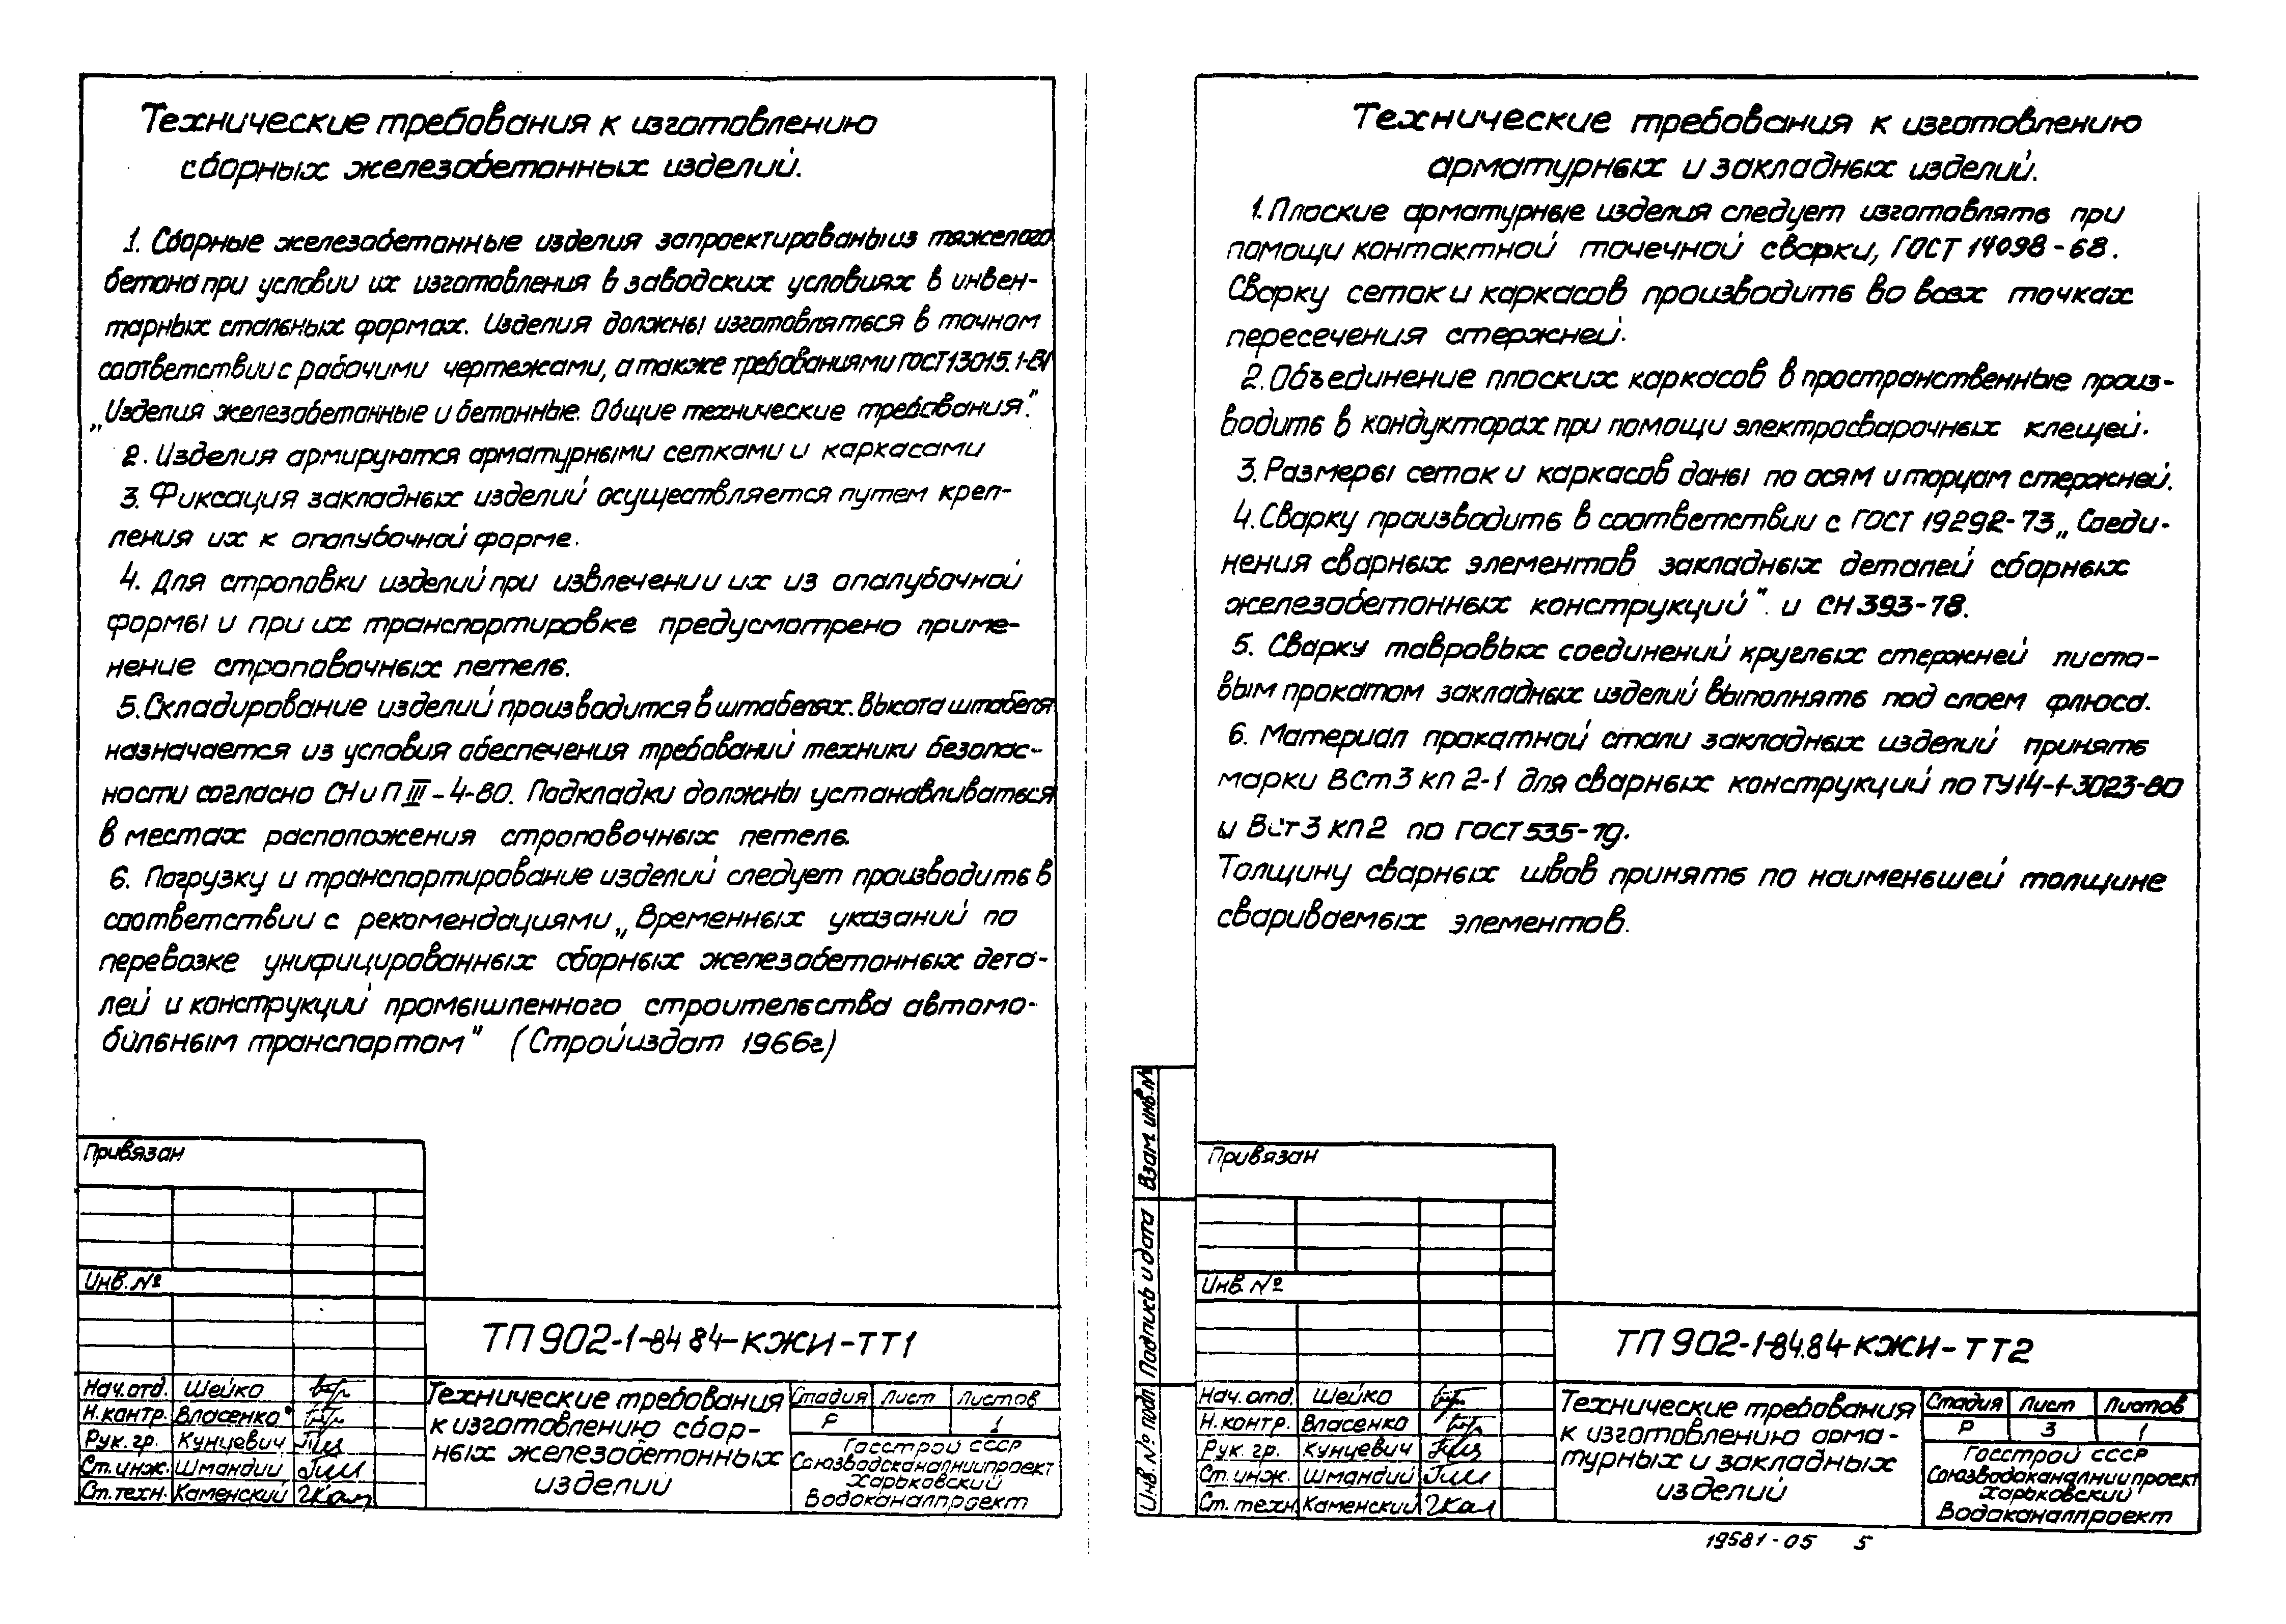 Технические требования к изготовлению
сборных железобетонных изделий.
1. Сборные железобетонные изделия запроектированы из тяжелого
бетона при условии их изготовления в заводских условиях в инвен-
тарных стальных формах. Изделия должны изготовляться в точном
соответствии с рабочими чертежами, а также требованиями ГОСТ 13015.1-81
„Изделия железобетонные и бетонные. Общие технические требования".
2. Изделия армируются арматурными сетками и каркасами
3. Фиксация закладных изделий осуществляется путем креп-
ления их к опалубочной форме.
4. Для строповки изделий при извлечении их из опалубочной
формы и при их транспортировке предусмотрено приме-
нение строповочных петель.
5. Складирование изделий производится в штабелях. Высота штабеля
назначается из условия обеспечения требований техники безопас-
ности согласно СНиП III-4-80. Подкладки должны устанавливаться
в местах расположения строповочных петель.
6. Погрузку и транспортирование изделий следует производить в
соответствии с рекомендациями „Временных указаний по
перевозке унифицированных сборных железобетонных дета-
лей и конструкций промышленного строительства автомо-
бильным транспортом" (Стройиздат 1966г)
Привязан
Инв. №
ТП 902-1-84 84-КЖИ-ТТ1
Нач.отд. Шейко
Н.контр. Власенко
Рук. гр. Кунцевич
Ст.инж. Шмандий
Ст.техн. Каменский
Технические требования
к изготовлению сбор-
ных железобетонных
изделий
Стадия Лист Листов
Р 1
Госстрой СССР
Союзводоканалниипроект
Харьковский
Водоканалпроект
Технические требования к изготовлению
арматурных и закладных изделий.
1. Плоские арматурные изделия следует изготовлять при
помощи контактной точечной сварки, ГОСТ 14098-68.
Сварку сеток и каркасов производить во всех точках
пересечения стержней.
2. Объединение плоских каркасов в пространственные произ-
водить в кондукторах при помощи электросварочных клещей.
3. Размеры сеток и каркасов даны по осям и торцам стержней.
4. Сварку производить в соответствии с ГОСТ 19292-73 „Соеди-
нения сварных элементов закладных деталей сборных
железобетонных конструкций". и СН 393-78.
5. Сварку тавровых соединений круглых стержней листо-
вым прокатом закладных изделий выполнять под слоем флюса.
6. Материал прокатной стали закладных изделий принять
марки ВСт3 кп 2-1 для сварных конструкций по ТУ14-1-3023-80
и ВСт3 кп2 по ГОСТ 535-79.
Толщину сварных швов принять по наименьшей толщине
свариваемых элементов.
Взам. инв.№
Подпись и дата
Инв. № подл.
Привязан
Инв. №
ТП 902-1-84.84-КЖИ-ТТ2
Нач. отд. Шейко
Н.контр. Власенко
Рук. гр. Кунцевич
Ст. инж. Шмандий
Ст. техн. Каменский
Технические требования
к изготовлению арма-
турных и закладных
изделий
Стадия Лист Листов
Р 3 1
Госстрой СССР
Союзводоканалниипроект
Харьковский
Водоканалпроект
19581-05 5